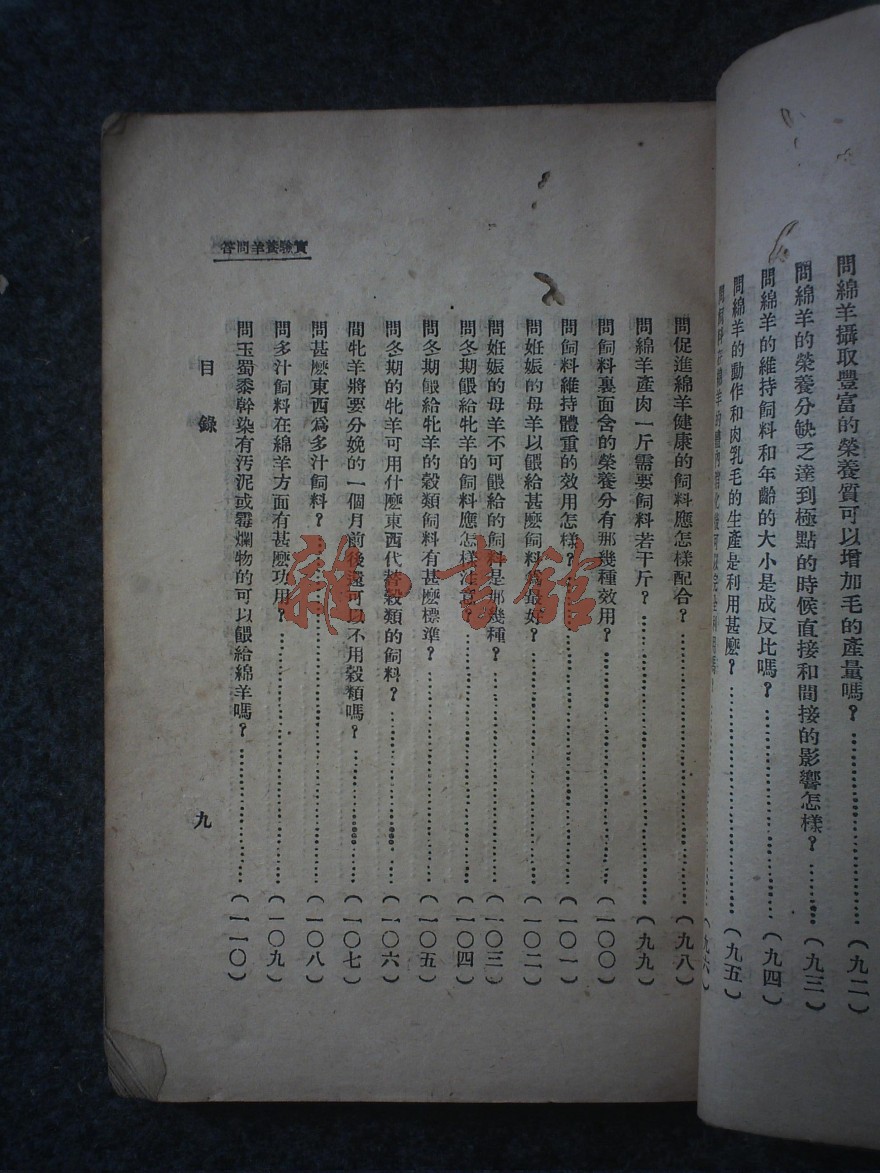 問綿羊攝取豐富的榮養質可以增加毛的產量嗎？…………(九二)
問綿羊的榮養分缺乏達到極點的時候直接和間接的影響怎樣？…………(九三)
問綿羊的維持飼料和年齡的大小是成反比嗎？…………(九四)
問綿羊的動作和肉乳毛的生產是利用甚麼？…………(九五)
(九六)
問促進綿羊健康的飼料應怎樣配合？…………(九八)
問綿羊產肉一斤需要飼料若干斤？…………(九九)
問飼料裏面含的榮養分有那幾種效用？…………(一〇〇)
問飼料維持體重的效用怎樣？…………(一〇一)
問妊娠的母羊以餵給甚麼飼料為最好？…………(一〇二)
問妊娠的母羊不可餵給的飼料是那幾種？…………(一〇三)
問冬期餵給牝羊的飼料應怎樣注意？…………(一〇四)
問冬期餵給牝羊的穀類飼料有甚麼標準？…………(一〇五)
問冬期的牝羊可用什麼東西代替穀類的飼料？…………(一〇六)
問牝羊將要分娩的一個月前後還可以不用穀類嗎？…………(一〇七)
問甚麼東西為多汁飼料？…………(一〇八)
問多汁飼料在綿羊方面有甚麼功用？…………(一〇九)
問玉蜀黍幹染有汚泥或霉爛物的可以餵給綿羊嗎？…………(一一〇)
目錄
九
實驗養羊問答
雜·書館